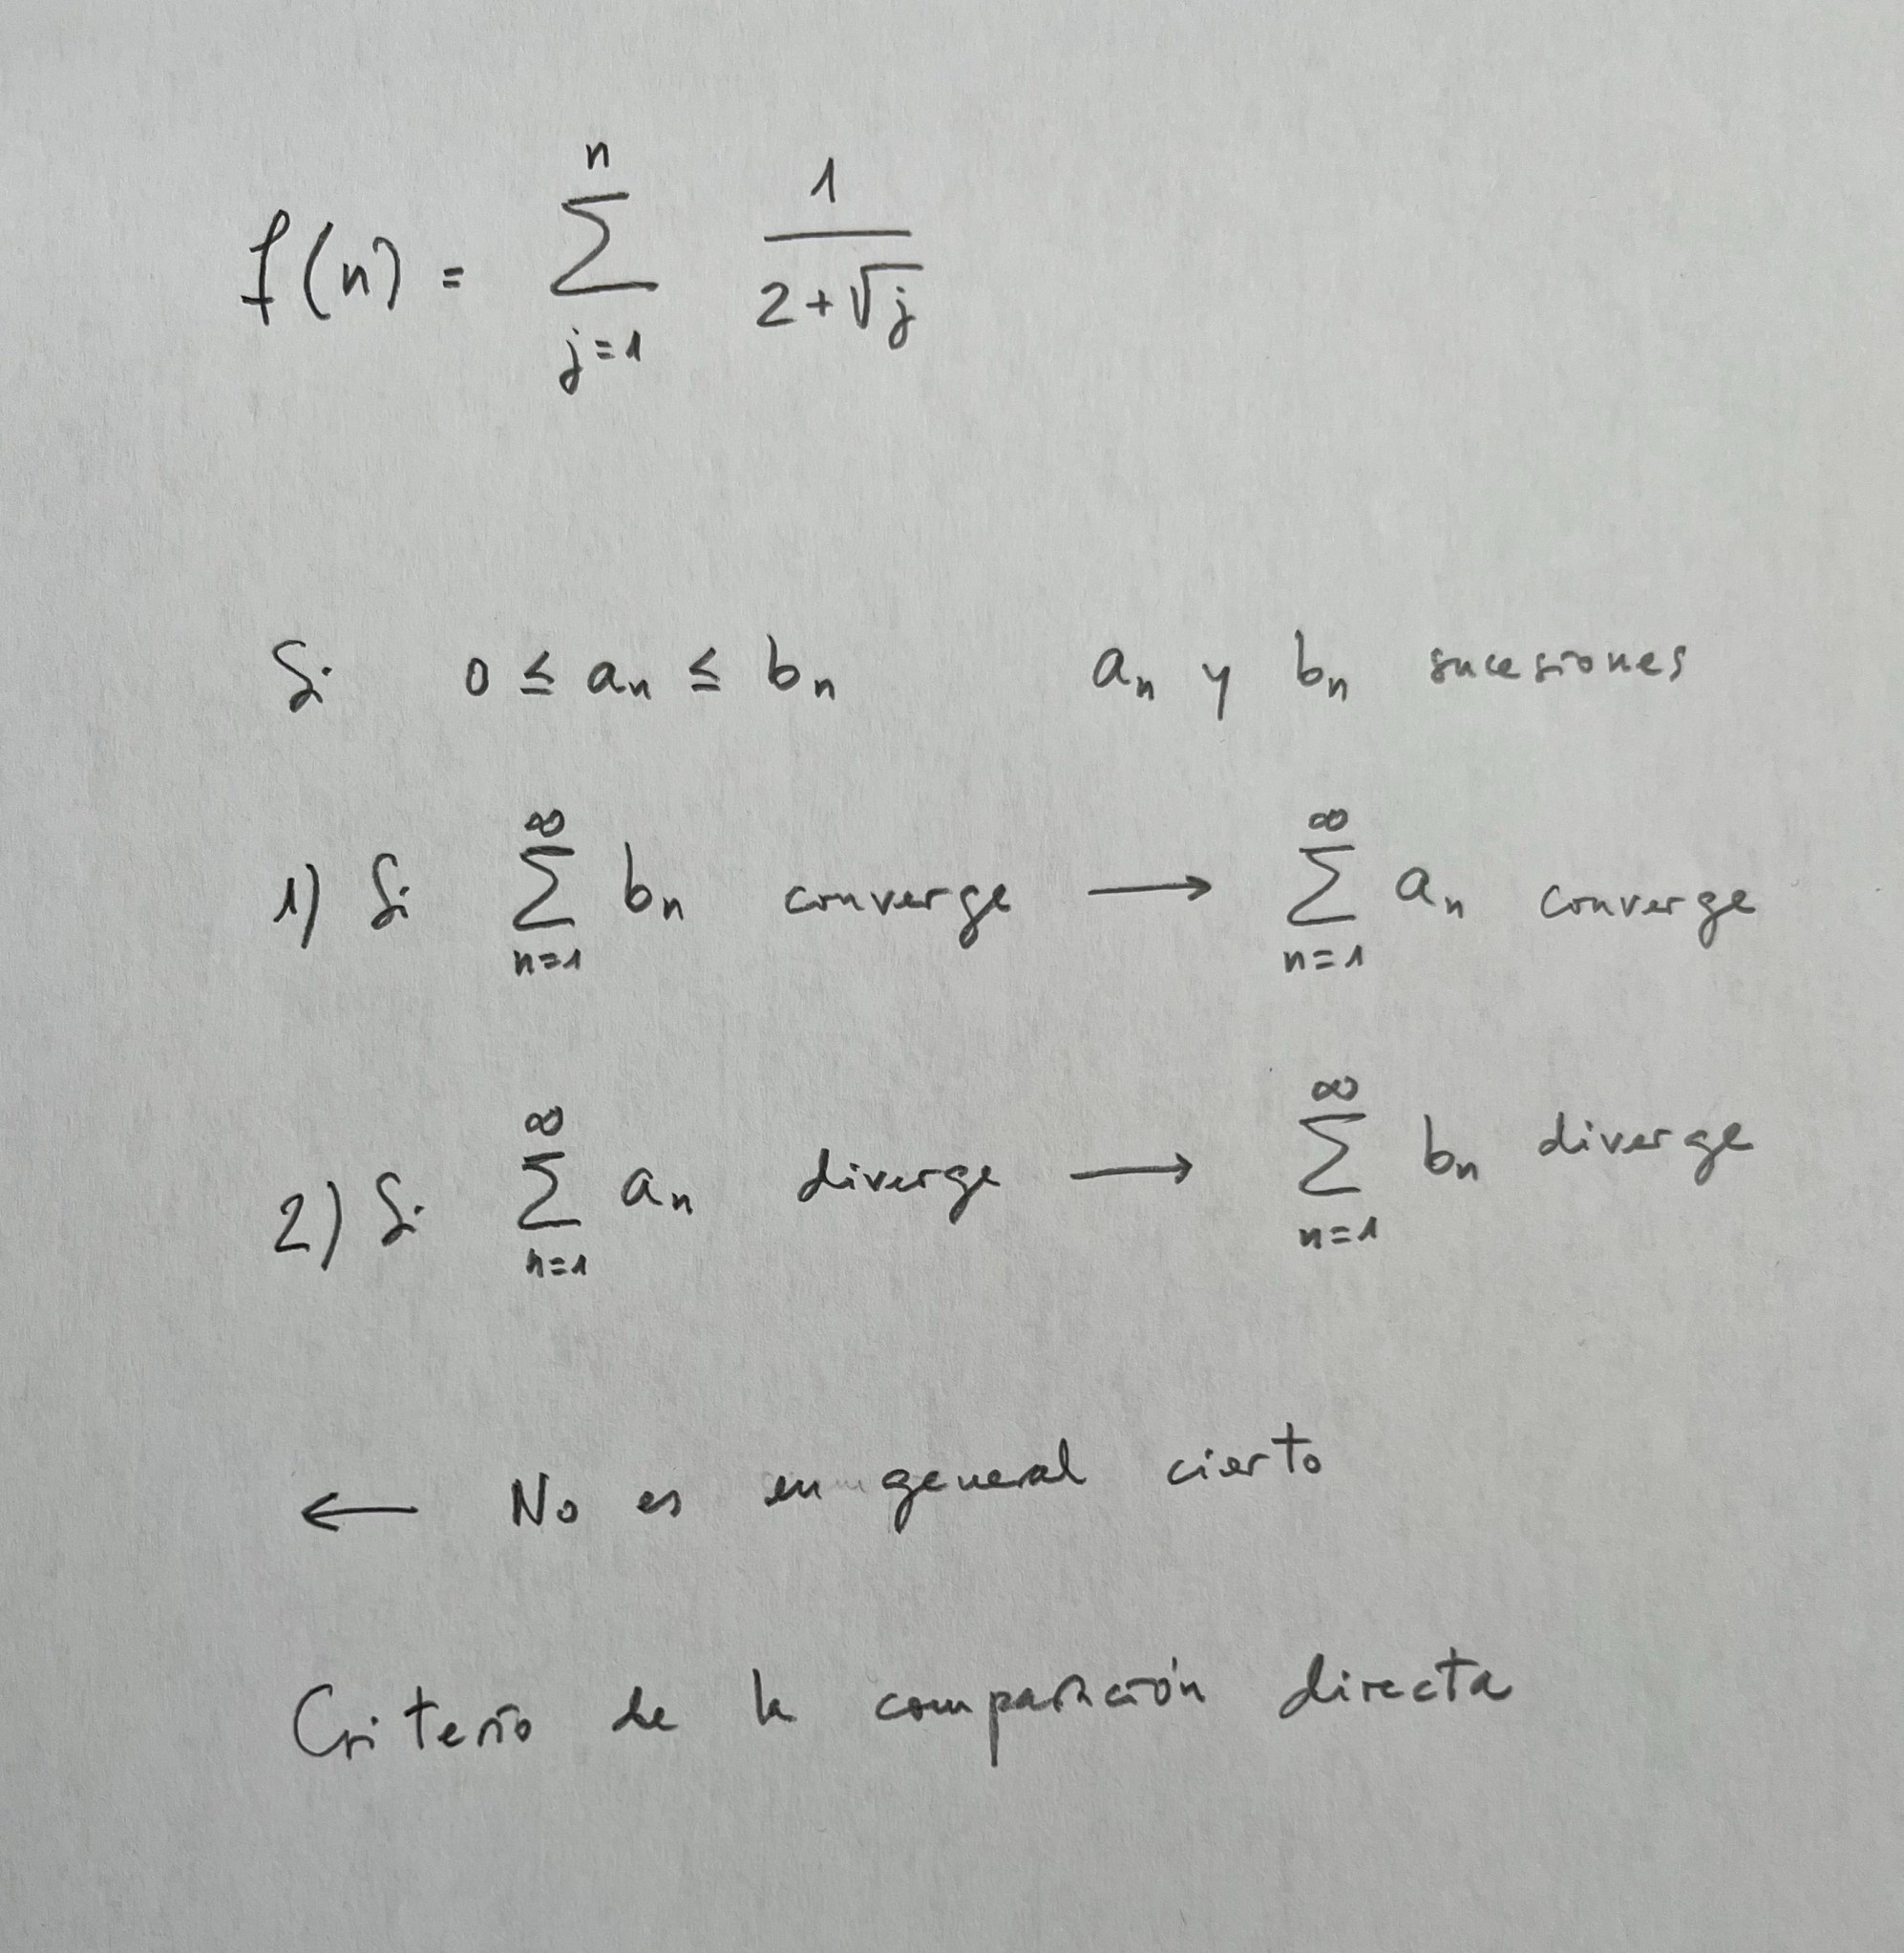 f(n) = \sum_{j=1}^{n} \frac{1}{2+\sqrt{j}}
Si 0 ≤ a_n ≤ b_n a_n y b_n sucesiones
1) Si \sum_{n=1}^{∞} b_n converge → \sum_{n=1}^{∞} a_n converge
2) Si \sum_{n=1}^{∞} a_n diverge → \sum_{n=1}^{∞} b_n diverge
← No es en general cierto
Criterio de la comparación directa